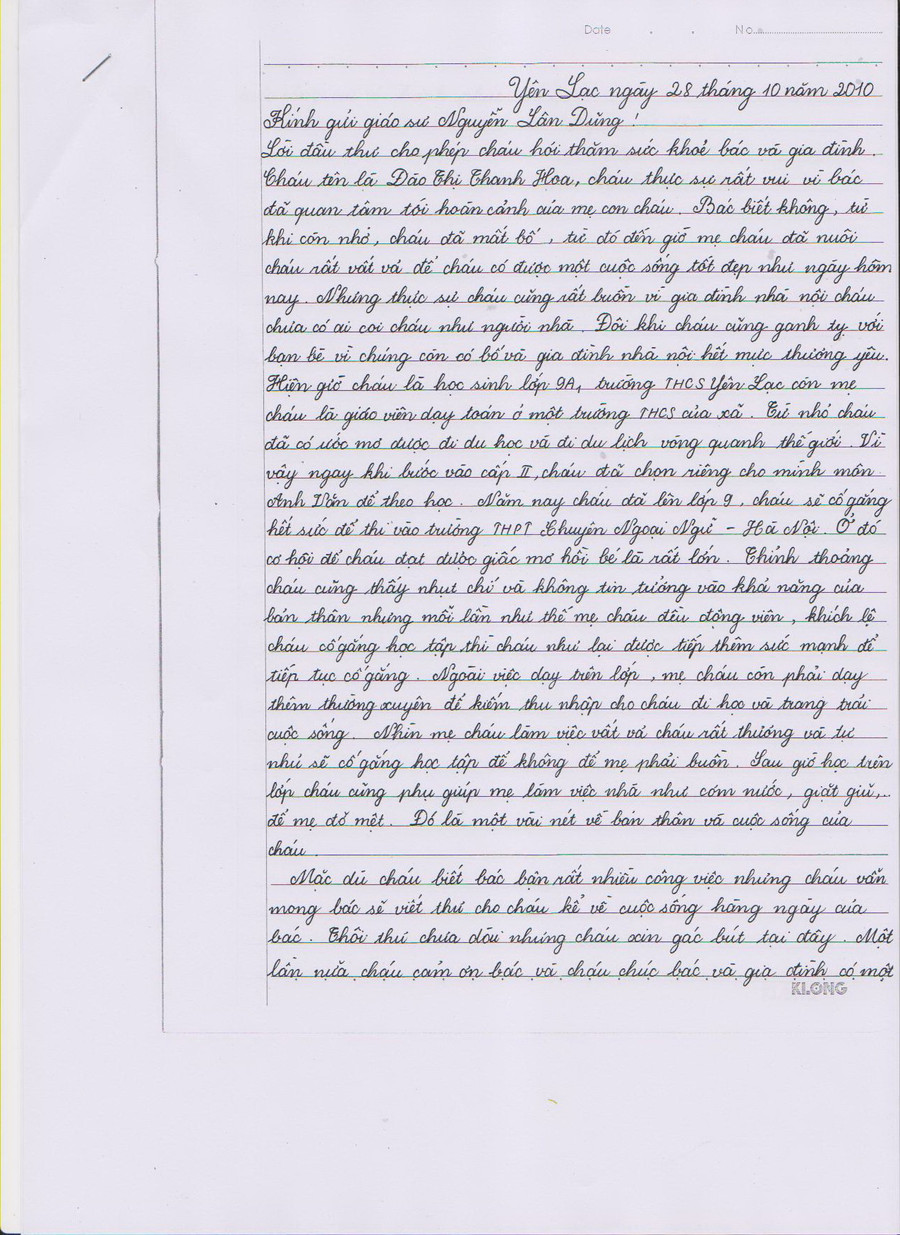 Date . . No.
Yên Lạc ngày 28 tháng 10 năm 2010
Kính gửi giáo sư Nguyễn Lân Dũng !
Lời đầu thư cho phép cháu hỏi thăm sức khoẻ bác và gia đình .
Cháu tên là Đào Thị Thanh Hoa, cháu thực sự rất vui vì bác
đã quan tâm tới hoàn cảnh của mẹ con cháu . Bác biết không , từ
khi còn nhỏ , cháu đã mất bố , từ đó đến giờ mẹ cháu đã nuôi
cháu rất vất vả để cháu có được một cuộc sống tốt đẹp như ngày hôm
nay . Nhưng thực sự cháu cũng rất buồn vì gia đình nhà nội cháu
chưa có ai coi cháu như người nhà . Đôi khi cháu cũng ganh tỵ với
bạn bè vì chúng còn có bố và gia đình nhà nội hết mực thương yêu.
Hiện giờ cháu là học sinh lớp 9A, trường THCS Yên Lạc còn mẹ
cháu là giáo viên dạy toán ở một trường THCS của xã . Từ nhỏ cháu
đã có ước mơ được đi du học và đi du lịch vòng quanh thế giới . Vì
vậy ngay khi bước vào cấp II, cháu đã chọn riêng cho mình môn
Anh Văn để theo học . Năm nay cháu đã lên lớp 9 , cháu sẽ cố gắng
hết sức để thi vào trường THPT Chuyên Ngoại Ngữ - Hà Nội . Ở đó
cơ hội để cháu đạt được giấc mơ hồi bé là rất lớn . Thỉnh thoảng
cháu cũng thấy nhụt chí và không tin tưởng vào khả năng của
bản thân nhưng mỗi lần như thế mẹ cháu đều động viên , khích lệ
cháu cố gắng học tập thì cháu như lại được tiếp thêm sức mạnh để
tiếp tục cố gắng . Ngoài việc dạy trên lớp , mẹ cháu còn phải dạy
thêm thường xuyên để kiếm thu nhập cho cháu đi học và trang trải
cuộc sống . Nhìn mẹ cháu làm việc vất vả cháu rất thương và tự
nhủ sẽ cố gắng học tập để không để mẹ phải buồn . Sau giờ học trên
lớp cháu cũng phụ giúp mẹ làm việc nhà như cơm nước , giặt giũ,..
để mẹ đỡ mệt . Đó là một vài nét về bản thân và cuộc sống của
cháu .
Mặc dù cháu biết bác bận rất nhiều công việc nhưng cháu vẫn
mong bác sẽ viết thư cho cháu kể về cuộc sống hàng ngày của
bác . Thôi thư chưa dài nhưng cháu xin gác bút tại đây . Một
lần nữa cháu cảm ơn bác và cháu chúc bác và gia đình có một
KLONG